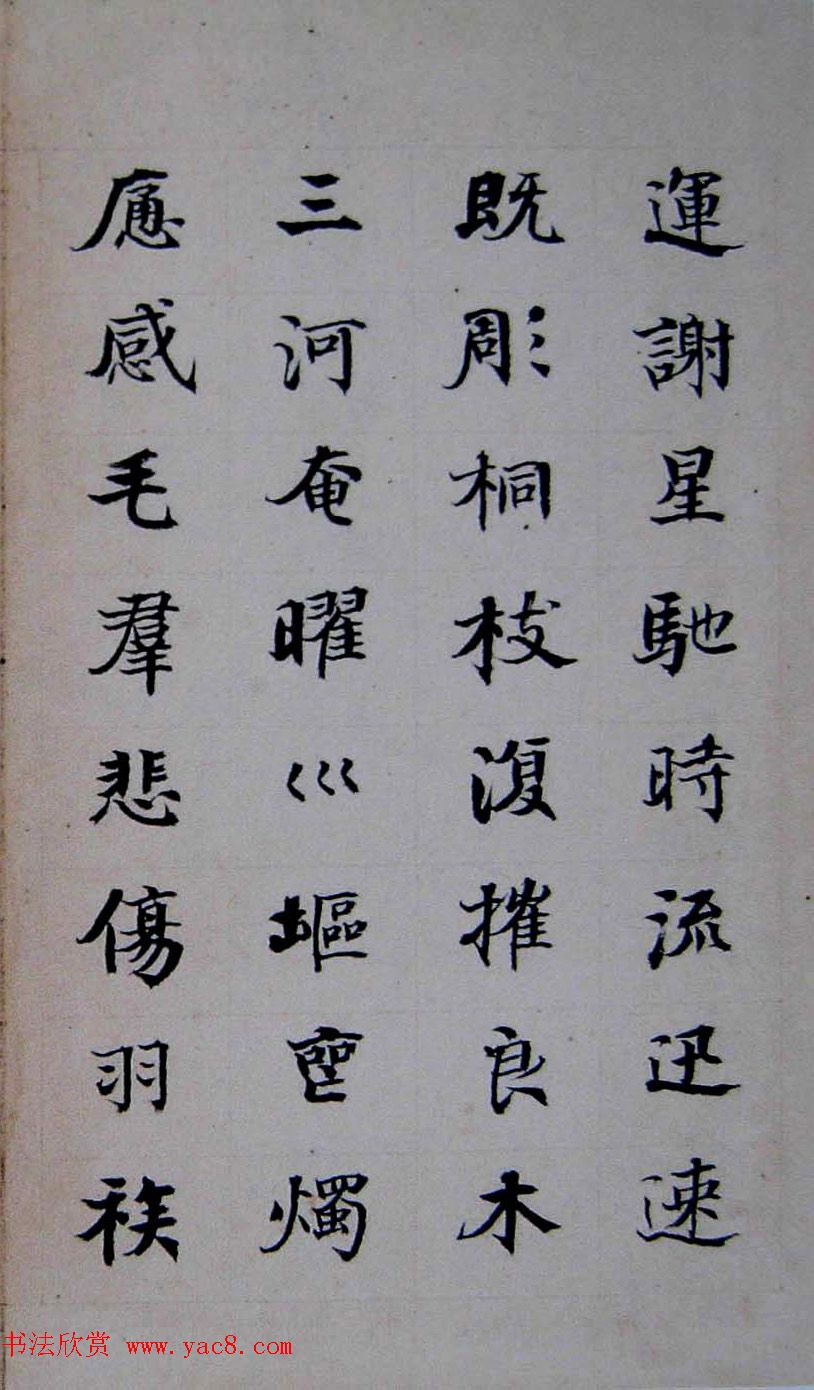 運謝星馳時流迅速
既彫桐枝復摧良木
三河奄曜巛塸燭
感毛羣悲傷羽族
书法欣赏 www.yac8.com